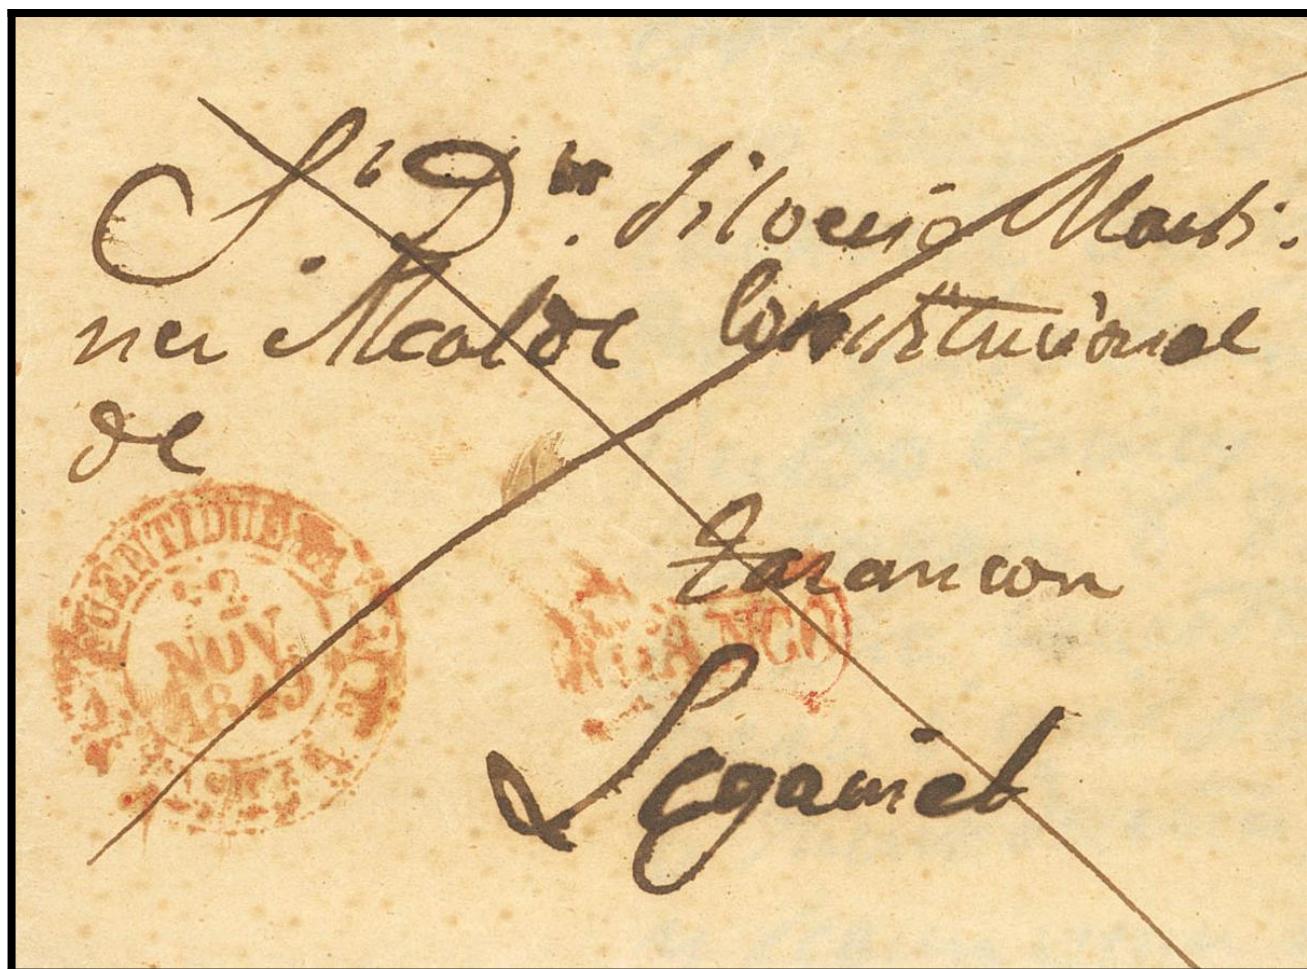 Sr Dn. Silverio Marti-
nez Alcalde Constitucional
de
Tarancon
FUENTIDUEÑA
22
NOV.
1849
FRANCO